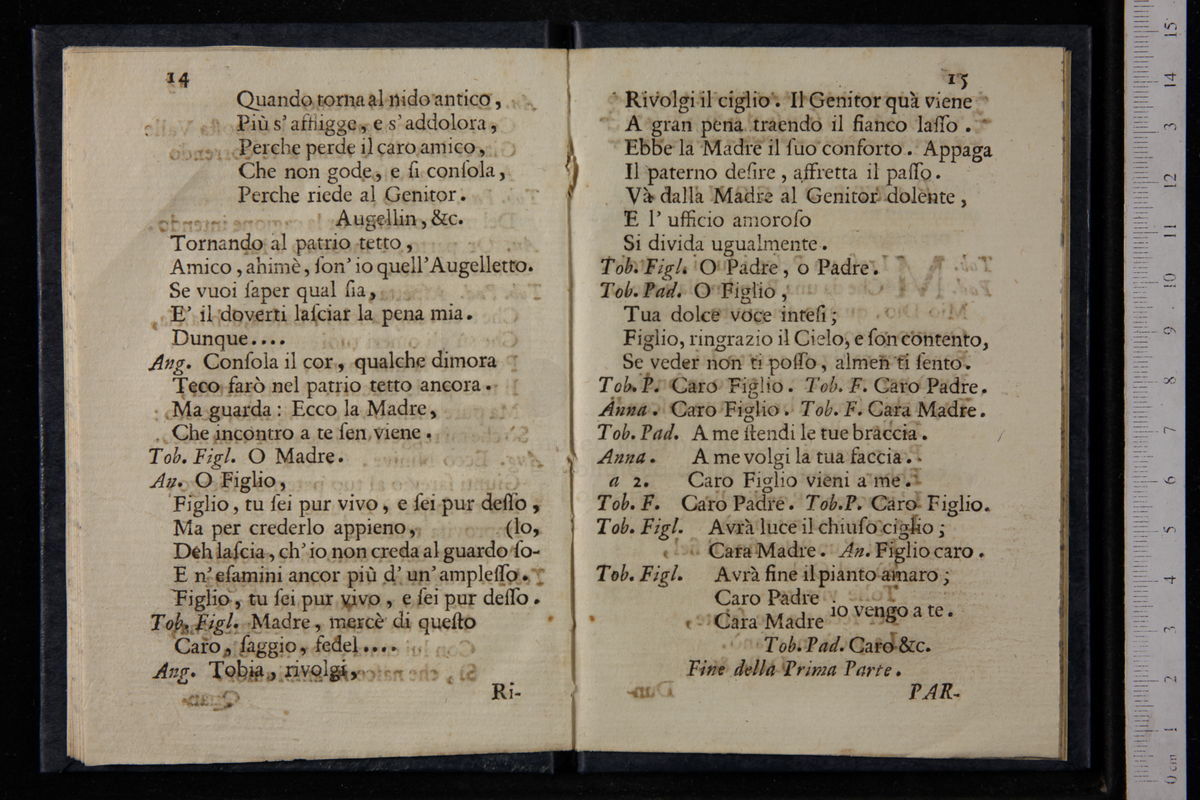 14
Quando torna al nido antico,
Più s' affligge, e s' addolora,
Perche perde il caro amico,
Che non gode, e ſi conſola,
Perche riede al Genitor.
Augellin, &c.
Tornando al patrio tetto,
Amico, ahimè, ſon' io quell'Augelletto.
Se vuoi ſaper qual ſia,
E' il doverti laſciar la pena mia.
Dunque....
Ang. Conſola il cor, qualche dimora
Teco farò nel patrio tetto ancora.
Ma guarda: Ecco la Madre,
Che incontro a te ſen viene.
Tob. Figl. O Madre.
An. O Figlio,
Figlio, tu ſei pur vivo, e ſei pur deſſo,
Ma per crederlo appieno, (lo,
Deh laſcia, ch' io non creda al guardo ſo-
E n' eſamini ancor più d' un' ampleſſo.
Figlio, tu ſei pur vivo, e ſei pur deſſo.
Tob. Figl. Madre, mercè di queſto
Caro, ſaggio, fedel....
Ang. Tobia, rivolgi,
Ri-
15
Rivolgi il ciglio. Il Genitor quà viene
A gran pena traendo il fianco laſſo.
Ebbe la Madre il ſuo conforto. Appaga
Il paterno deſire, affretta il paſſo.
Và dalla Madre al Genitor dolente,
E l' ufficio amoroſo
Si divida ugualmente.
Tob. Figl. O Padre, o Padre.
Tob. Pad. O Figlio,
Tua dolce voce inteſi;
Figlio, ringrazio il Cielo, e ſon contento,
Se veder non ti poſſo, almen ti ſento.
Tob. P. Caro Figlio. Tob. F. Caro Padre.
Anna. Caro Figlio. Tob. F. Cara Madre.
Tob. Pad. A me ſtendi le tue braccia.
Anna. A me volgi la tua faccia.
a 2. Caro Figlio vieni a me.
Tob. F. Caro Padre. Tob. P. Caro Figlio.
Tob. Figl. Avrà luce il chiuſo ciglio;
Cara Madre. An. Figlio caro.
Tob. Figl. Avrà fine il pianto amaro;
Caro Padre
Cara Madre io vengo a te.
Tob. Pad. Caro &c.
Fine della Prima Parte.
PAR-
0 cm 1 2 3 4 5 6 7 8 9 10 11 12 13 14 15